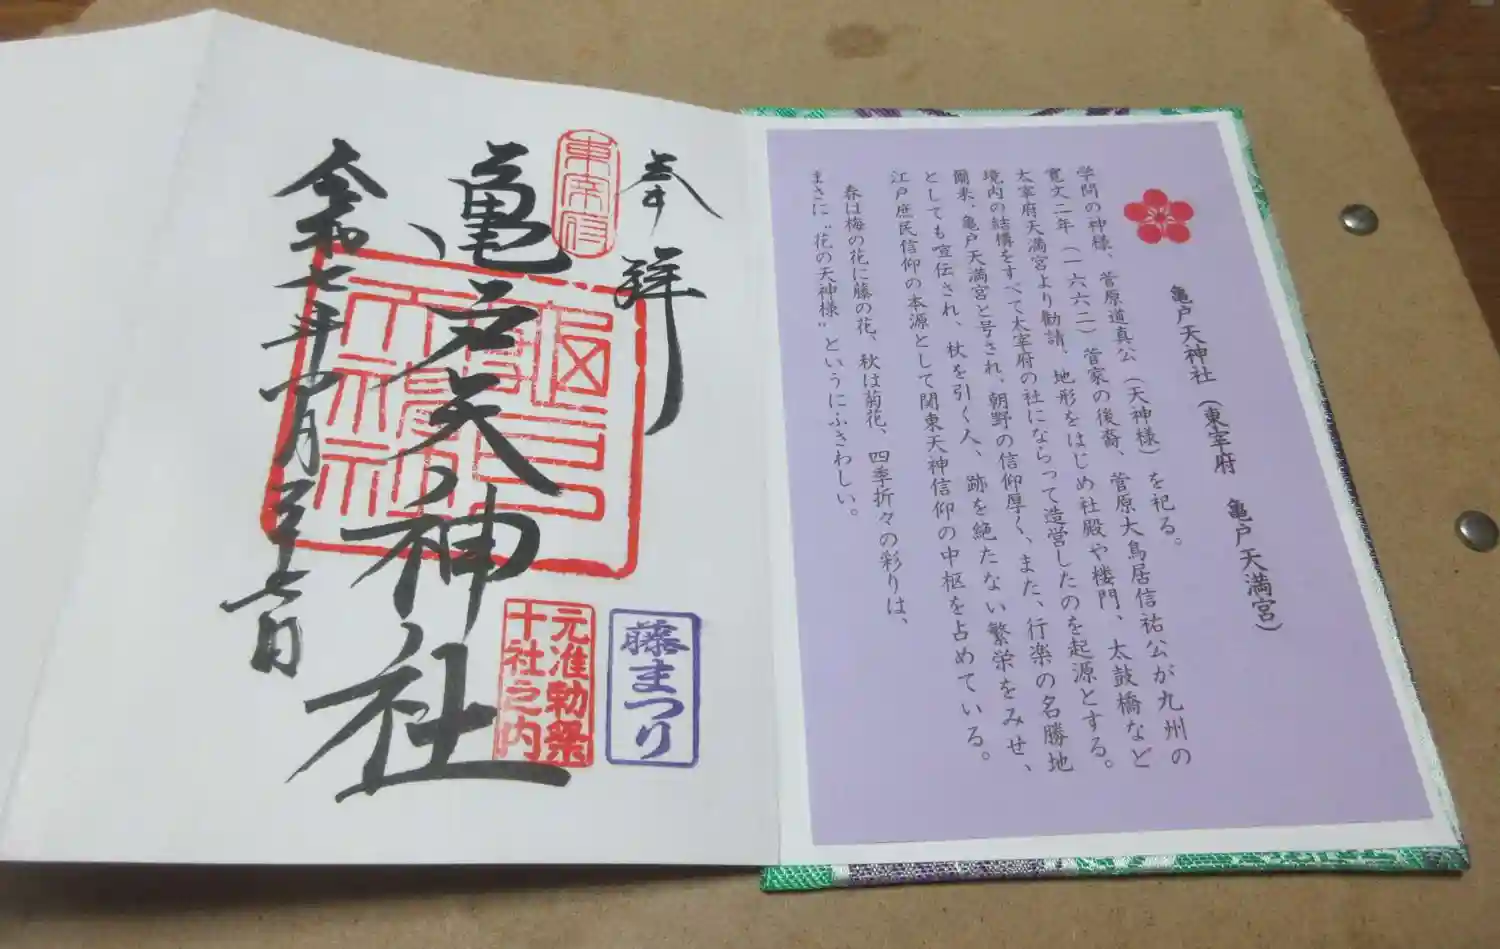 亀戸天神社（東宰府 亀戸天満宮）
学問の神様、菅原道真公（天神様）を祀る。
寛文二年（一六六二）菅家の後裔、菅原大鳥居信祐公が九州の
太宰府天満宮より勧請、地形をはじめ社殿や楼門、太鼓橋など
境内の結構をすべて太宰府の社にならって造営したのを起源とする。
爾来、亀戸天満宮と号され、朝野の信仰厚く、また、行楽の名勝地
としても宣伝され、杖を引く人、跡を絶たない繁栄をみせ、
江戸庶民信仰の本源として関東天神信仰の中枢を占めている。
春は梅の花に藤の花、秋は菊花、四季折々の彩りは、
まさに“花の天神様”というにふさわしい。
参拝
東宰府
亀戸天神社
藤まつり
元准勅祭
十社之内
令和七年四月二十七日